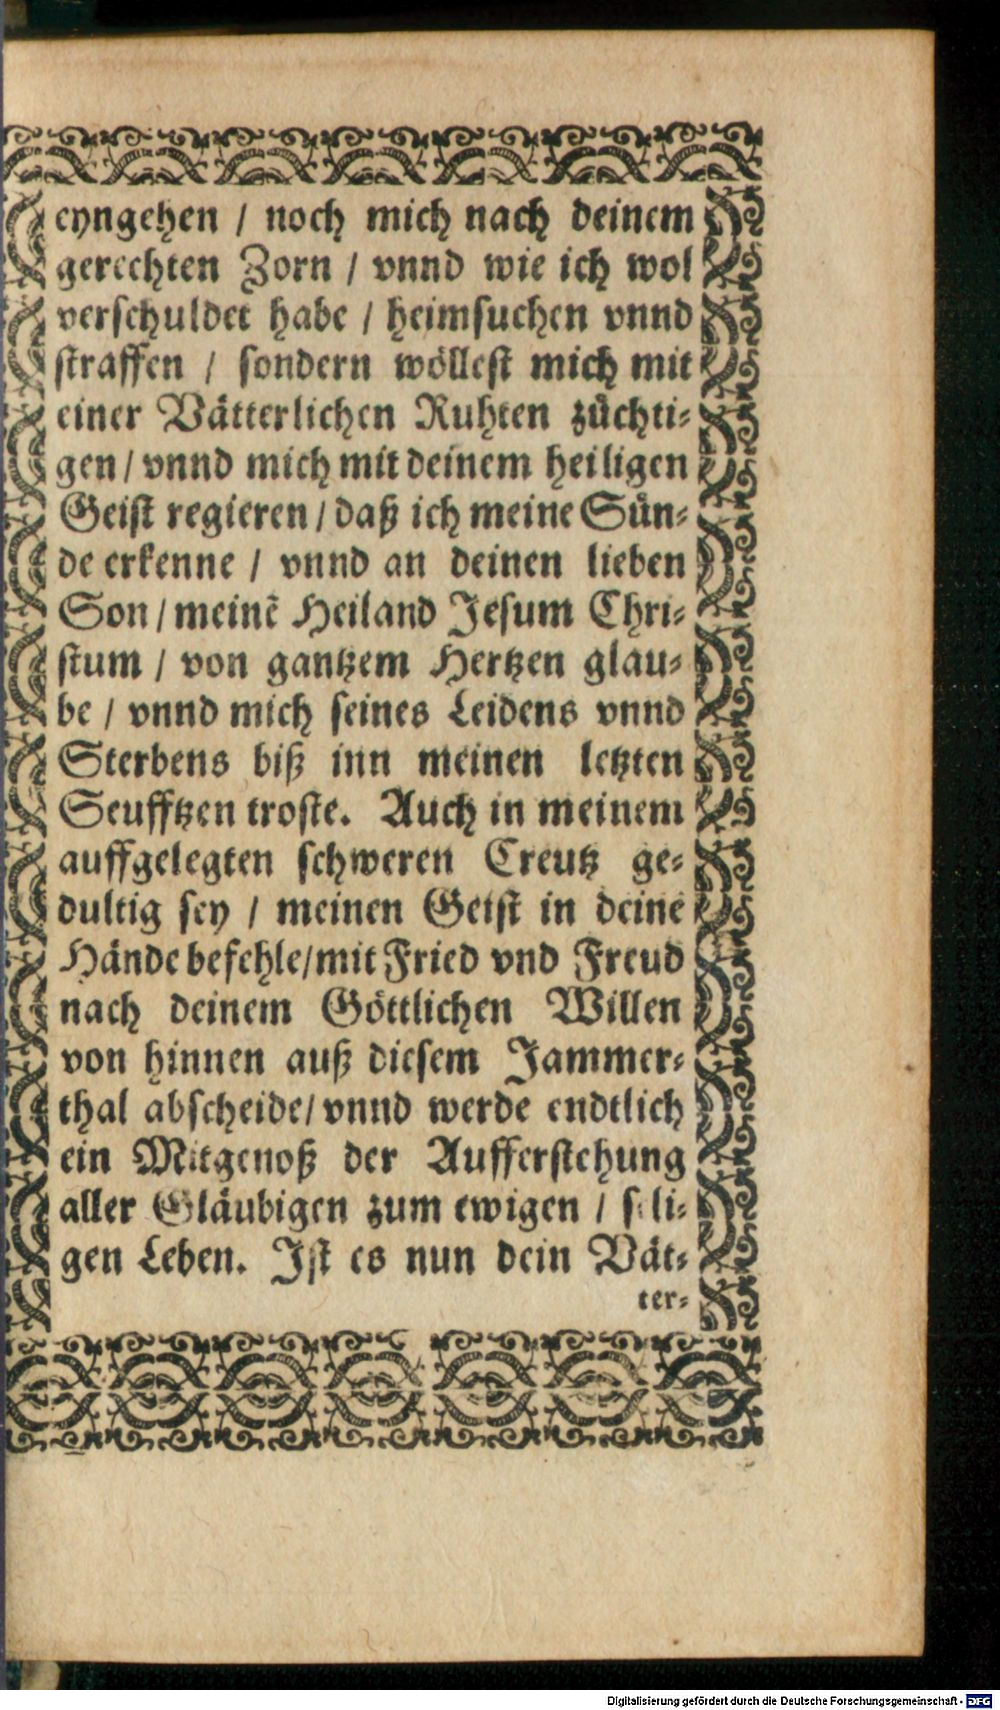 eyngehen / noch mich nach deinem
gerechten Zorn / vnnd wie ich wol
verschuldet habe / heimsuchen vnnd
straffen / sondern wöllest mich mit
einer Vätterlichen Ruhten züchti⸗
gen / vnnd mich mit deinem heiligen
Geist regieren / daß ich meine Sün⸗
de erkenne / vnnd an deinen lieben
Son / meinẽ Heiland Jesum Chri⸗
stum / von gantzem Hertzen glau⸗
be / vnnd mich seines Leidens vnnd
Sterbens biß inn meinen letzten
Seufftzen troste. Auch in meinem
auffgelegten schweren Creutz ge⸗
dultig sey / meinen Geist in deine
Hände befehle / mit Fried vnd Freud
nach deinem Göttlichen Willen
von hinnen auß diesem Jammer⸗
thal abscheide / vnnd werde endtlich
ein Mitgenoß der Aufferstehung
aller Gläubigen zum ewigen / seli⸗
gen Leben. Ist es nun dein Vät⸗
ter⸗
Digitalisierung gefördert durch die Deutsche Forschungsgemeinschaft - DFG